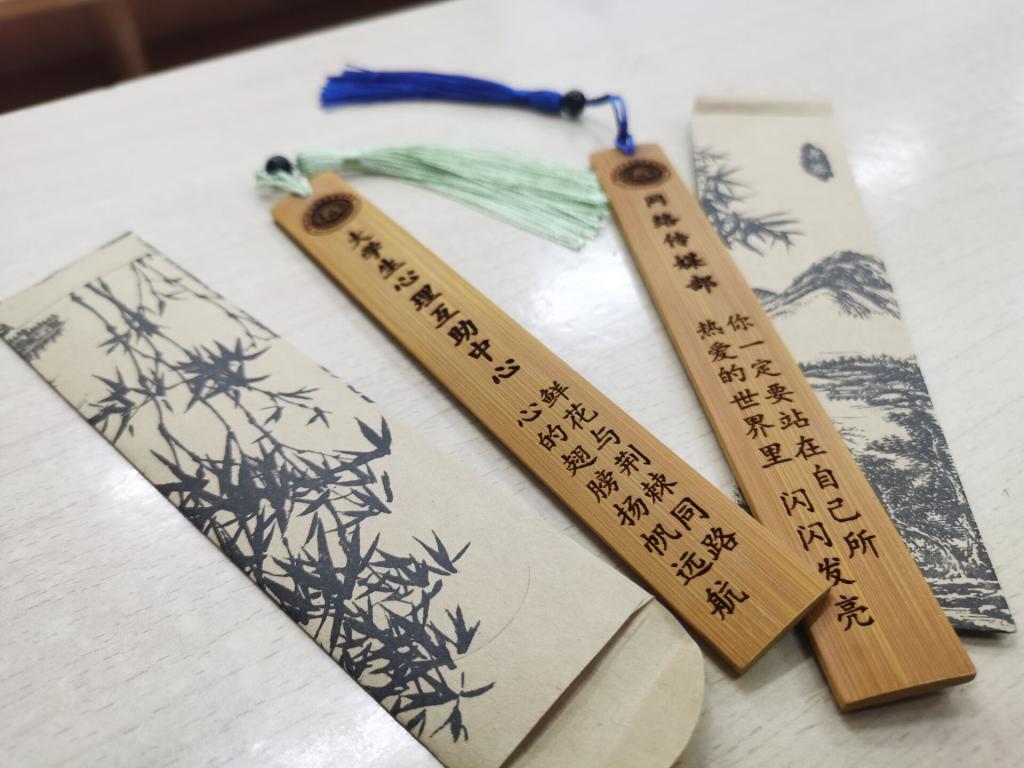 大学生心理互助中心
鲜花与荆棘同路
心的翅膀扬帆远航
网络传媒部
你一定要站在自己所
热爱的世界里 闪闪发亮